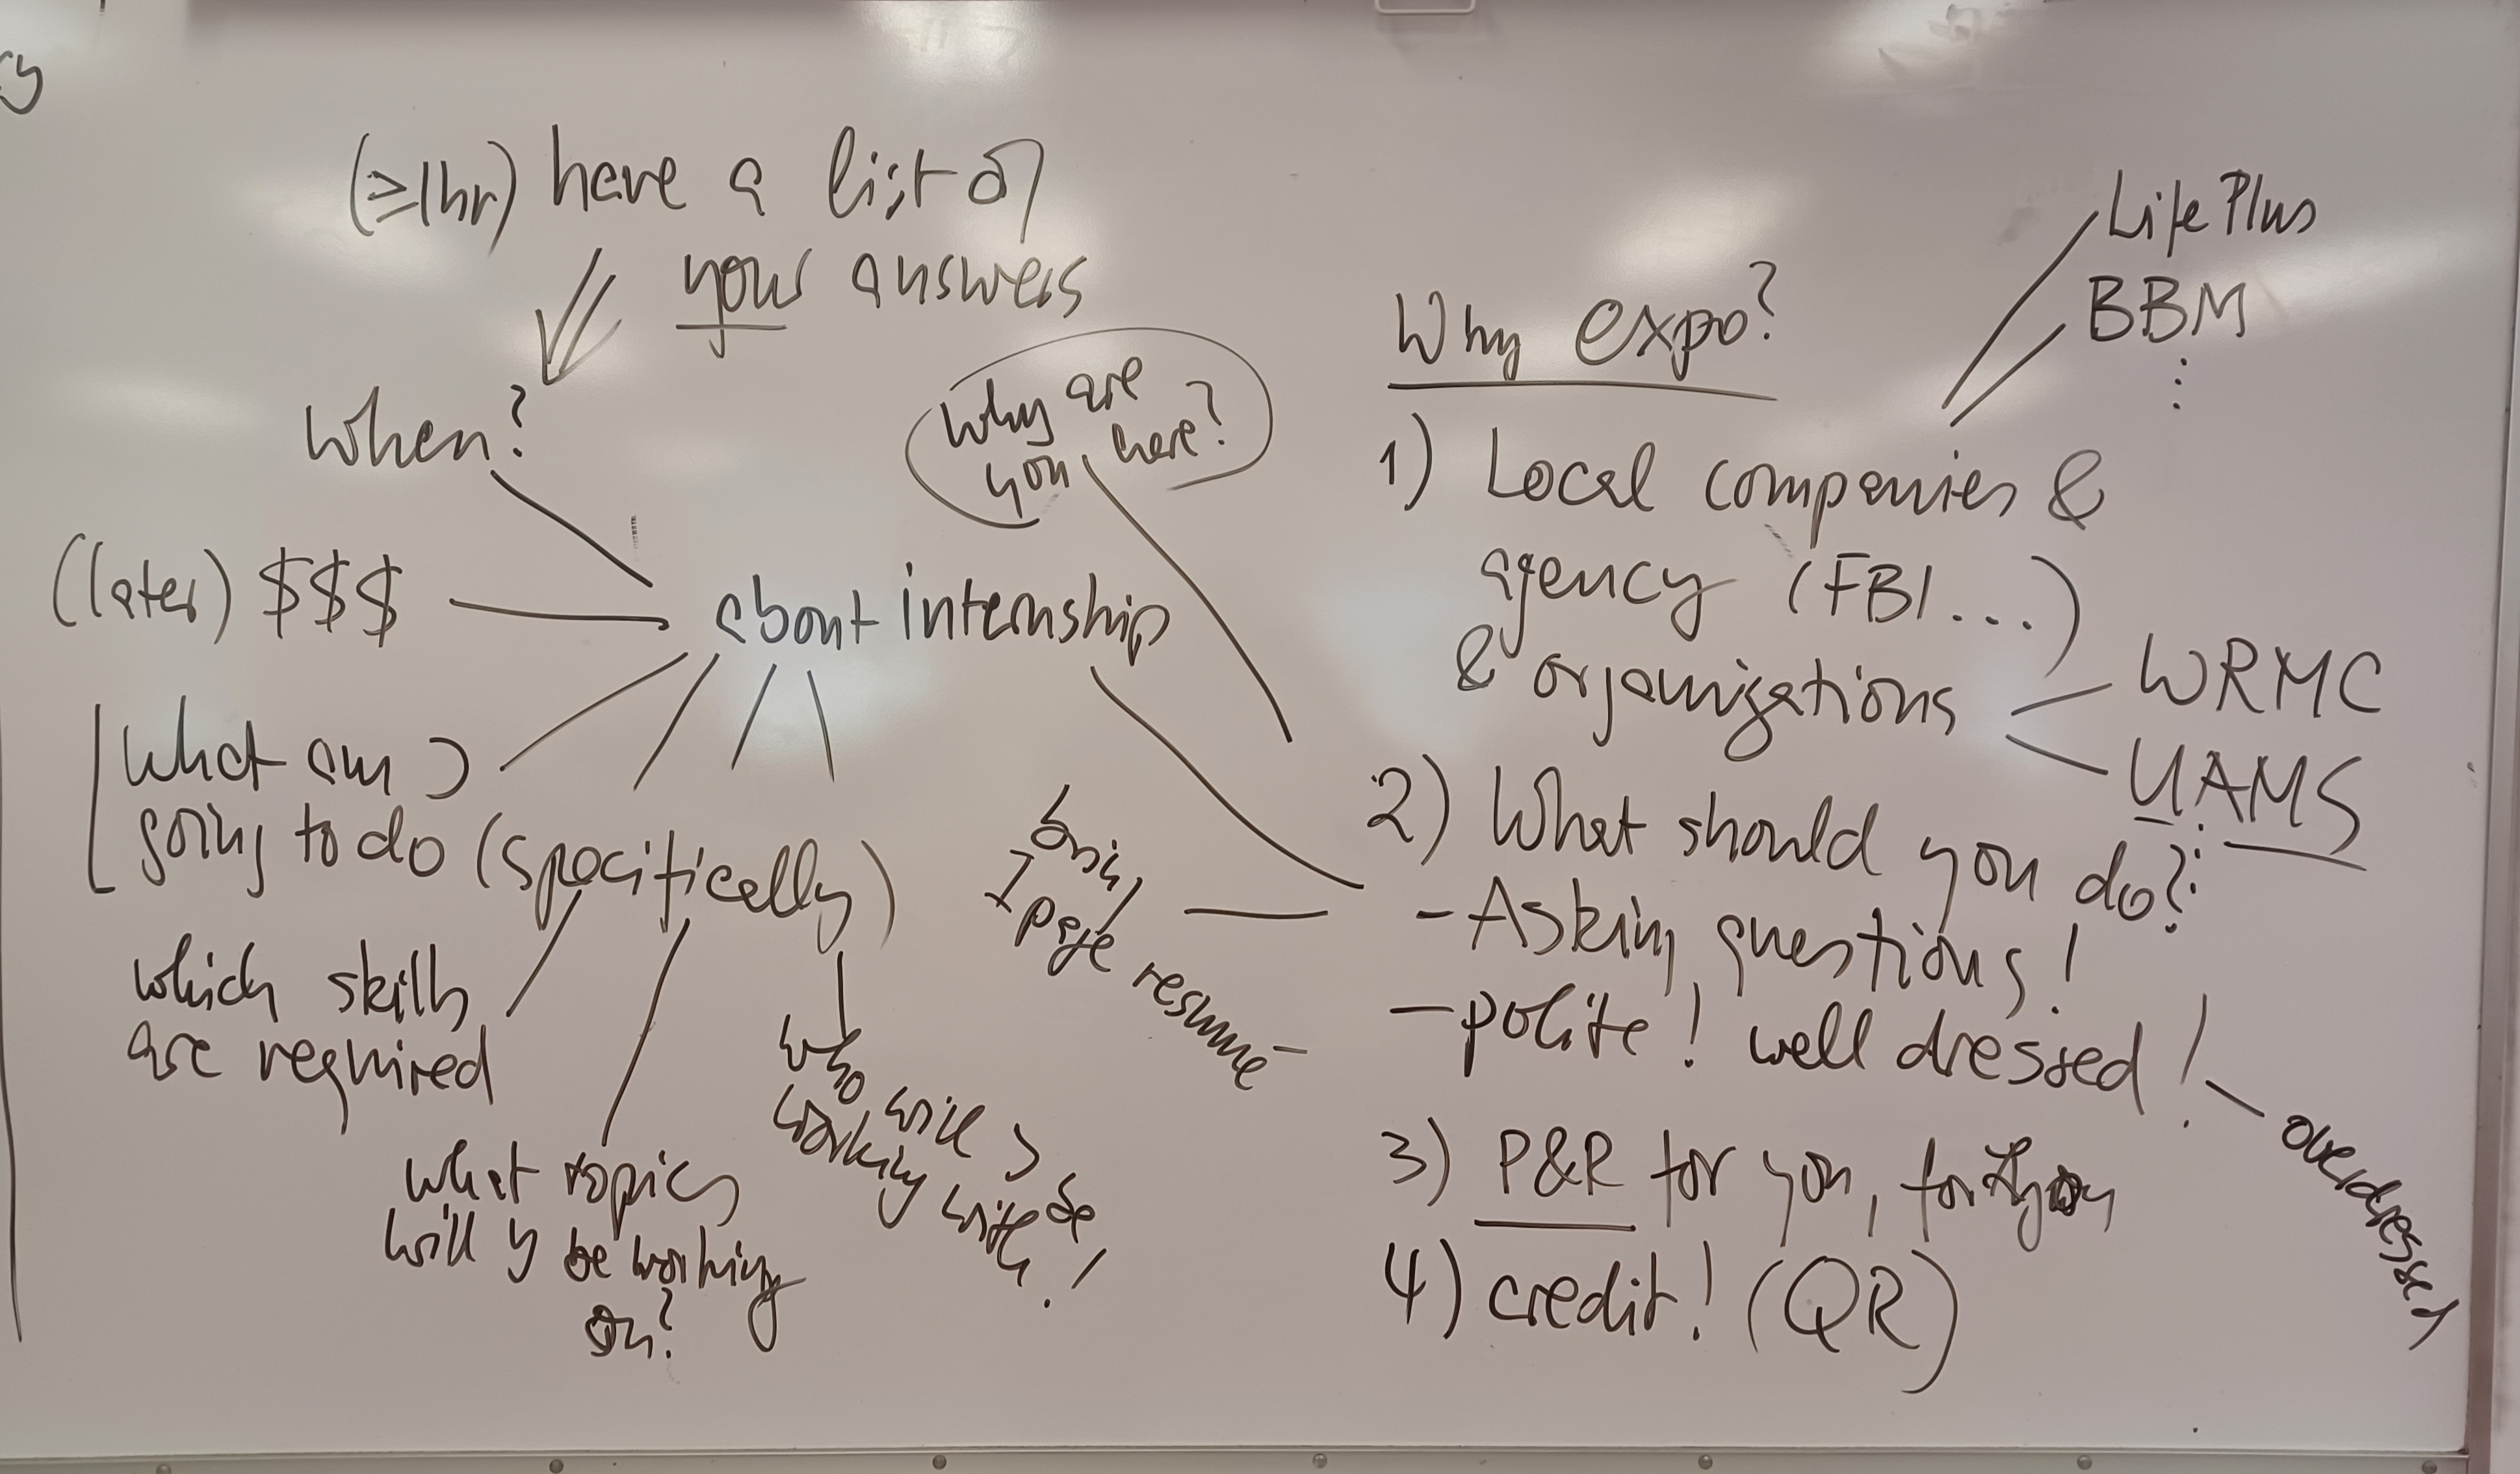 (≥1hr) have a list of
your answers
When?
Why are
you here?
(later) $$$
about internship
What am I
going to do (specifically)
which skills
are required
what topics
will y be working
on?
who will I be
working with!
bring
1 page resume
Why expo?
Life Plus
BBM
⋮
1) Local companies &
agency (FBI...)
& organizations
WRMC
UAMS
⋮
2) What should you do?
- Asking questions!
- polite! well dressed!
- overdressed
3) P&R for you, for
4) credit! (QR)